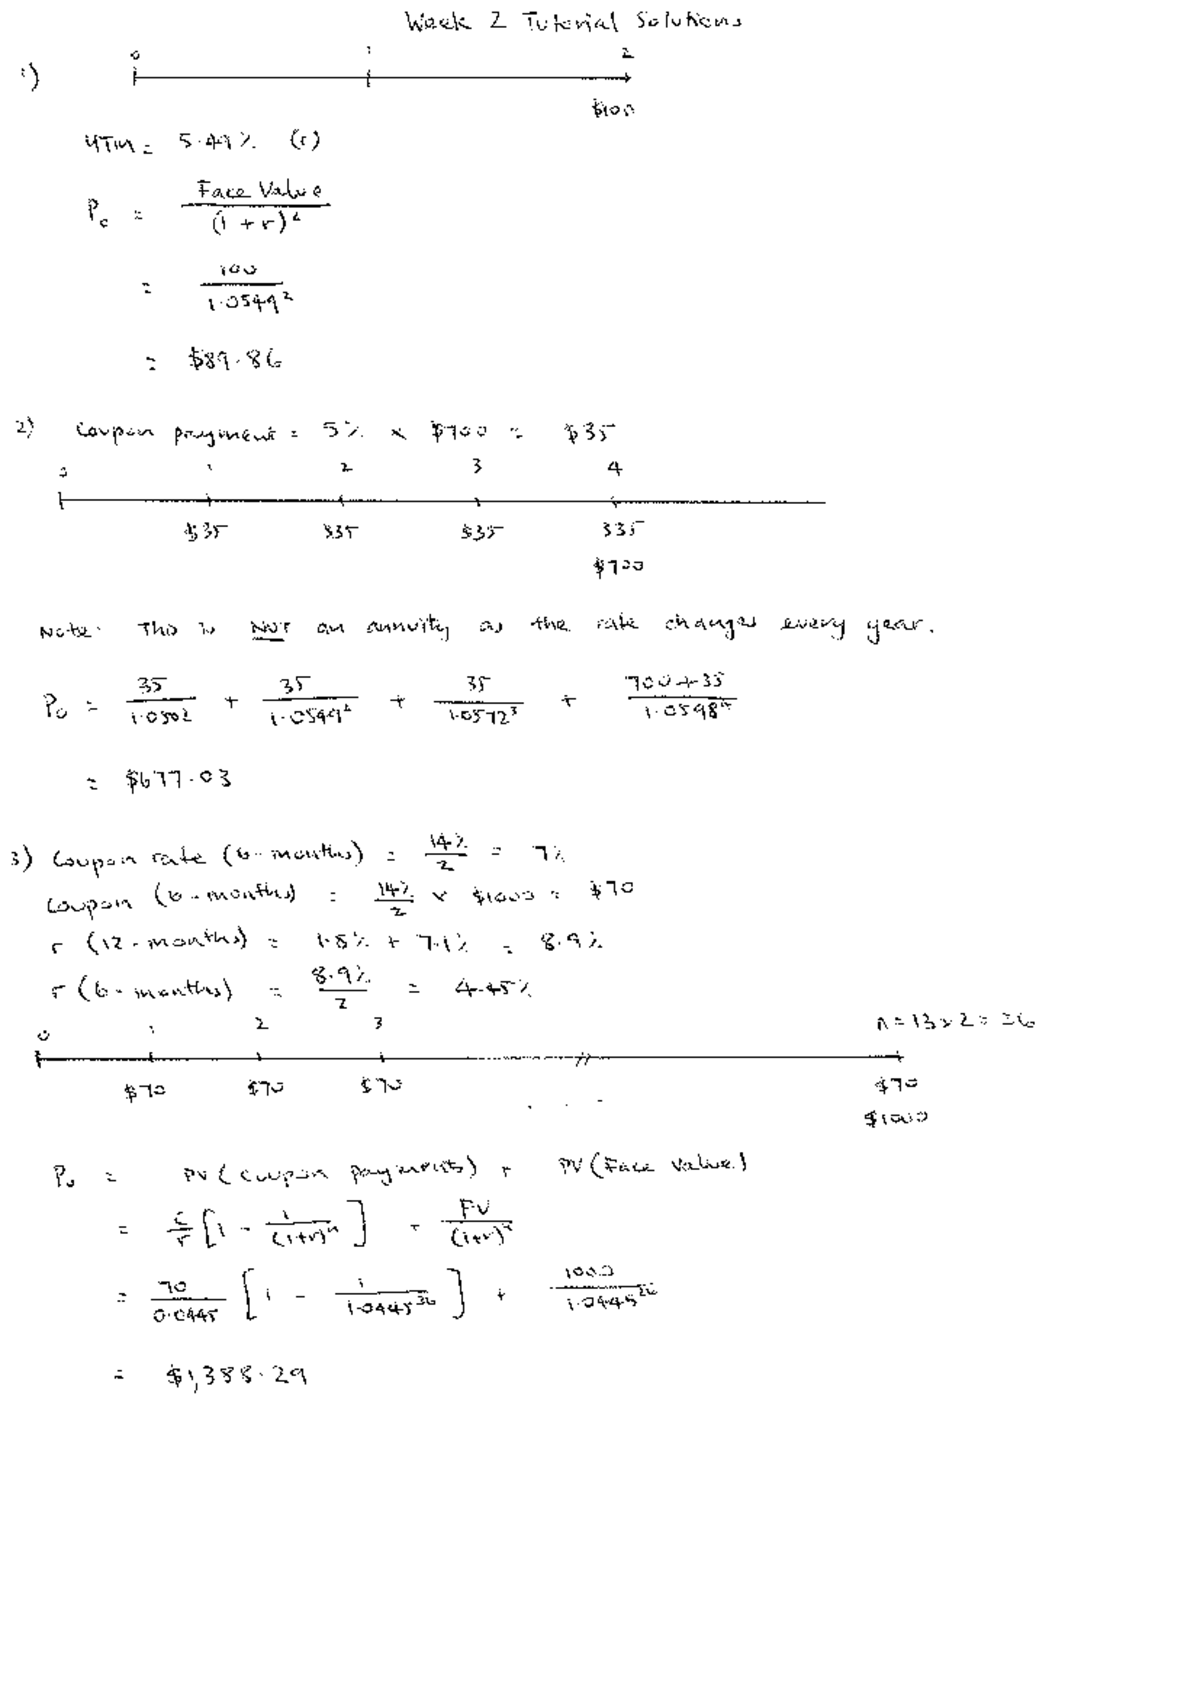 Week 2 Tutorial Solutions
0 1 2
1)
$100
YTM = 5.49% (r)
P₀ = Face Value / (1 + r)²
= 100 / 1.0549²
= $89.86
2) Coupon payment = 5% × $700 = $35
0 1 2 3 4
$35 $35 $35 $35
$700
Note: This is NOT an annuity as the rate changes every year.
P₀ = 35 / 1.0502 + 35 / 1.0549² + 35 / 1.0572³ + 700+35 / 1.0598⁴
= $677.03
3) Coupon rate (6-months) = 14% / 2 = 7%
Coupon (6-months) = 14% / 2 × $1000 = $70
r (12-months) = 1.8% + 7.1% = 8.9%
r (6-months) = 8.9% / 2 = 4.45%
0 1 2 3 n = 13 × 2 = 26
$70 $70 $70 . . . $70
$1000
P₀ = PV (Coupon payments) + PV (Face Value)
= C/r [1 - 1 / (1+r)ⁿ] + FV / (1+r)ⁿ
= 70 / 0.0445 [1 - 1 / 1.0445²⁶] + 1000 / 1.0445²⁶
= $1,388.29